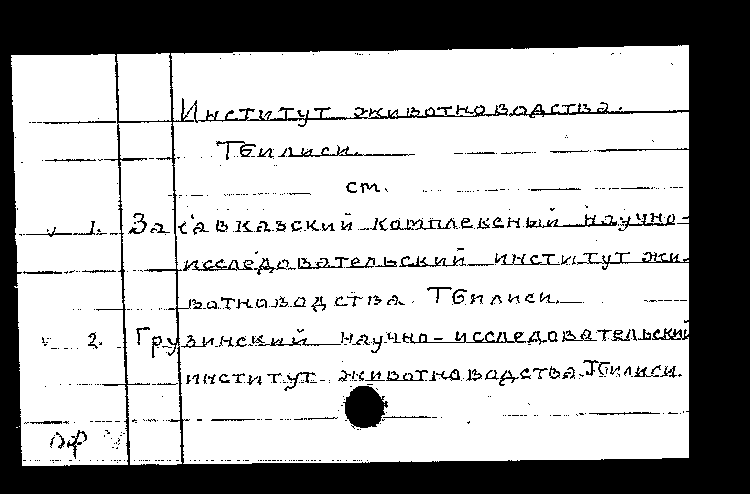 Институт животноводства.
Тбилиси.
см.
v 1. Закавказский комплексный научно-
исследовательский институт жи-
вотноводства. Тбилиси.
v 2. Грузинский научно-исследовательский
институт животноводства. Тбилиси.